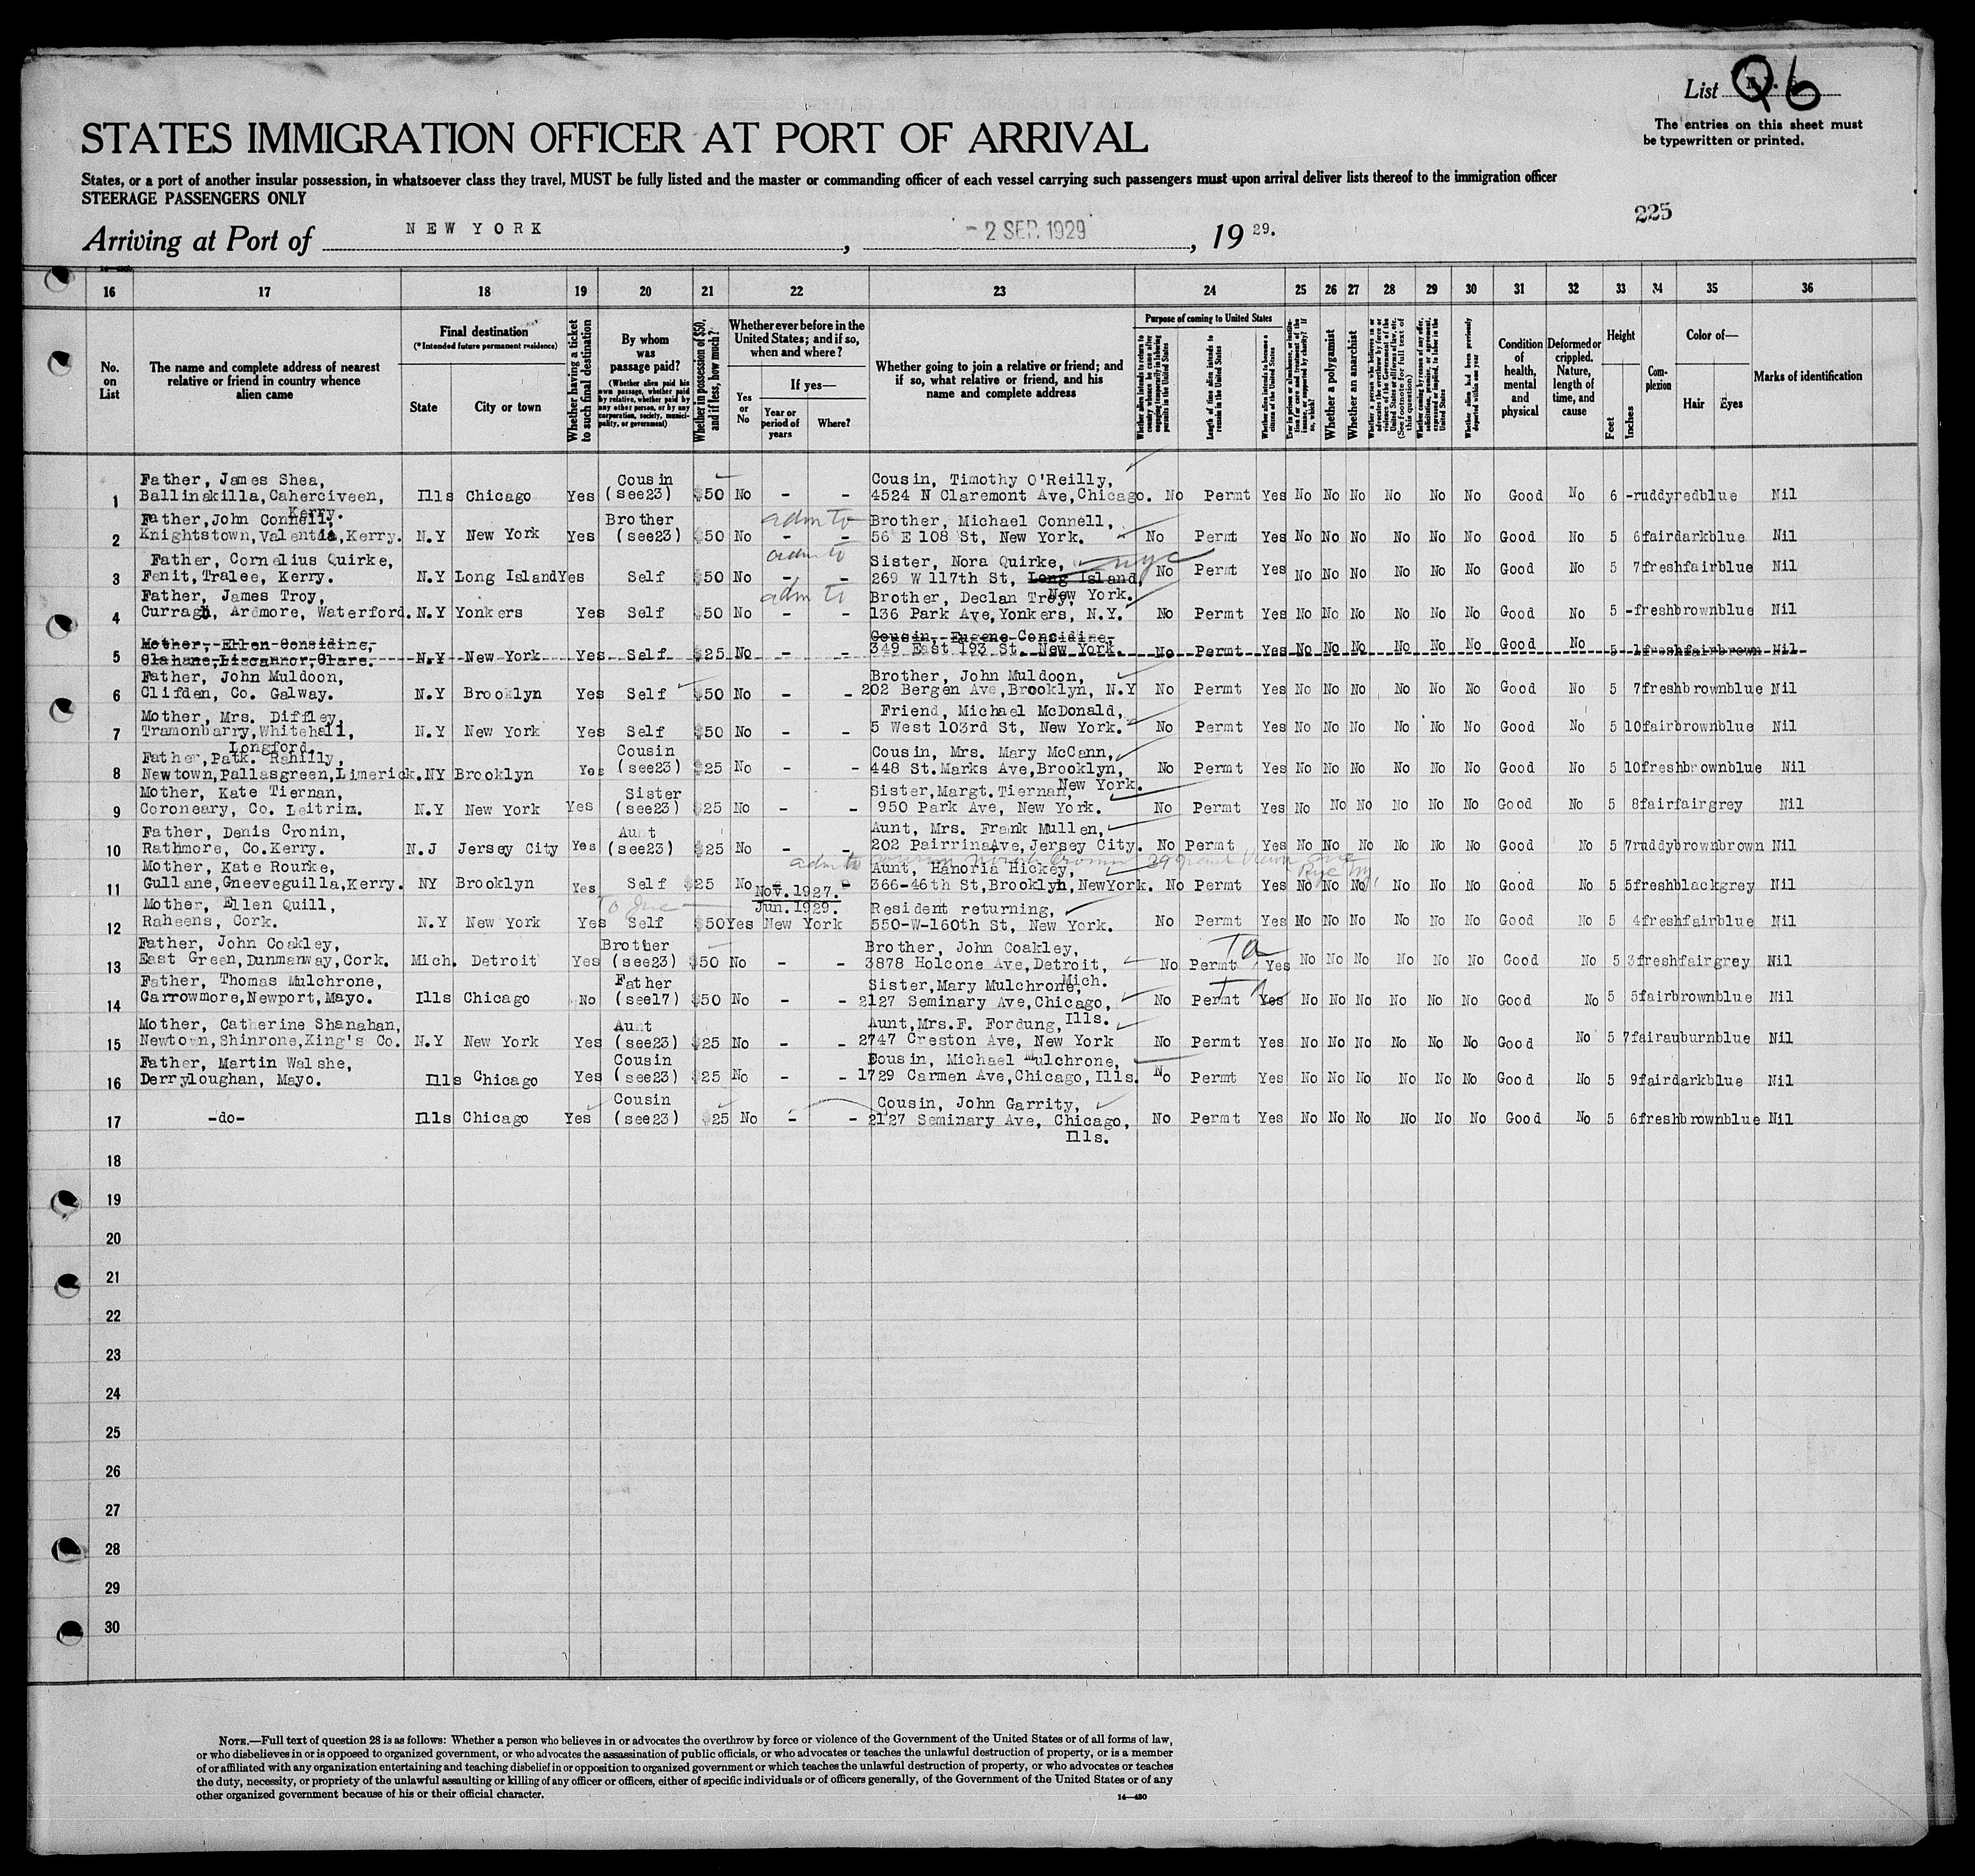 List Q6
The entries on this sheet must
be typewritten or printed.
STATES IMMIGRATION OFFICER AT PORT OF ARRIVAL
States, or a port of another insular possession, in whatsoever class they travel, MUST be fully listed and the master or commanding officer of each vessel carrying such passengers must upon arrival deliver lists thereof to the immigration officer
STEERAGE PASSENGERS ONLY
225
Arriving at Port of NEW YORK, - 2 SEP. 1929, 19 29.
16 17 18 19 20 21 22 23 24 25 26 27 28 29 30 31 32 33 34 35 36
No. on List
The name and complete address of nearest relative or friend in country whence alien came
Final destination
(*Intended future permanent residence)
State
City or town
Whether having a ticket to such final destination
By whom was passage paid?
(Whether alien paid his own passage, whether paid by relative, whether paid by any other person, or by any corporation, society, municipality, or government)
Whether in possession of $50, and if less, how much?
Whether ever before in the United States; and if so, when and where?
Yes or No
If yes—
Year or period of years
Where?
Whether going to join a relative or friend; and if so, what relative or friend, and his name and complete address
Purpose of coming to United States
Whether alien intends to return to country whence he came after engaging temporarily in laboring pursuits in the United States
Length of time alien intends to remain in the United States
Whether alien intends to become a citizen of the United States
Whether a polygamist
Whether an anarchist
Whether alien had been previously deported within one year
Condition of health, mental and physical
Deformed or crippled. Nature, length of time, and cause
Height
Feet
Inches
Complexion
Color of—
Hair
Eyes
Marks of identification
1 Father, James Shea, Cousin Cousin, Timothy O'Reilly,
Ballinskilla, Caherciveen, Kerry. Ills Chicago Yes (see23) $50 No - - 4524 N Claremont Ave, Chicago. No Permt Yes No No No No No No Good No 6 - ruddy red blue Nil
adm to
2 Father, John Connell, Brother Brother, Michael Connell,
Knightstown, Valentia, Kerry. N.Y New York Yes (see23) $50 No - - 56 E 108 St, New York. No Permt Yes No No No No No No Good No 5 6 fair dark blue Nil
adm to
3 Father, Cornelius Quirke, Sister, Nora Quirke, nyc
Fenit, Tralee, Kerry. N.Y Long Island Yes Self $50 No - - 269 W 117th St, Long Island, New York. No Permt Yes No No No No No No Good No 5 7 fresh fair blue Nil
adm to
4 Father, James Troy, Brother, Declan Troy,
Curragh, Ardmore, Waterford. N.Y Yonkers Yes Self $50 No - - 136 Park Ave, Yonkers, N.Y. No Permt Yes No No No No No No Good No 5 - fresh brown blue Nil
5 Mother, Ellen Considine, Cousin, Eugene Considine,
Clahane, Liscannor, Clare. N.Y New York Yes Self $25 No - - 349 East 193 St. New York. No Permt Yes No No No No No No Good No 5 1 fresh fair brown Nil
6 Father, John Muldoon, Brother, John Muldoon,
Clifden, Co. Galway. N.Y Brooklyn Yes Self $50 No - - 202 Bergen Ave, Brooklyn, N.Y No Permt Yes No No No No No No Good No 5 7 fresh brown blue Nil
7 Mother, Mrs. Diffley, Friend, Michael McDonald,
Tramonbarry, Whitehall, Longford. N.Y New York Yes Self $50 No - - 5 West 103rd St, New York. No Permt Yes No No No No No No Good No 5 10 fair brown blue Nil
8 Father, Patk. Rahilly, Cousin Cousin, Mrs. Mary McCann,
Newtown, Pallasgreen, Limerick. NY Brooklyn Yes (see23) $25 No - - 448 St. Marks Ave, Brooklyn, New York. No Permt Yes No No No No No No Good No 5 10 fresh brown blue Nil
9 Mother, Kate Tiernan, Sister Sister, Margt. Tiernan,
Coroneary, Co. Leitrim. N.Y New York Yes (see23) $25 No - - 950 Park Ave, New York. No Permt Yes No No No No No No Good No 5 8 fair fair grey Nil
10 Father, Denis Cronin, Aunt Aunt, Mrs. Frank Mullen,
Rathmore, Co. Kerry. N.J Jersey City Yes (see23) $25 No - - 202 Pairrin Ave, Jersey City. No Permt Yes No No No No No No Good No 5 7 ruddy brown brown Nil
adm to
11 Mother, Kate Rourke, Aunt, Hanoria Hickey,
Gullane, Gneeveguilla, Kerry. NY Brooklyn Yes Self $25 No - - 366-46th St, Brooklyn, New York. No Permt Yes No No No No No No Good No 5 5 fresh black grey Nil
12 Mother, Ellen Quill, Nov. 1927. Jun. 1929. Resident returning,
Raheens, Cork. N.Y New York Yes Self $50 Yes New York 550-W-160th St, New York. No Permt Yes No No No No No No Good No 5 4 fresh fair blue Nil
13 Father, John Coakley, Brother Brother, John Coakley,
East Green, Dunmanway, Cork. Mich. Detroit Yes (see23) $50 No - - 3878 Holcone Ave, Detroit, Mich. No Permt Yes No No No No No No Good No 5 3 fresh fair grey Nil
14 Father, Thomas Mulchrone, Father Sister, Mary Mulchrone,
Carrowmore, Newport, Mayo. Ills Chicago No (see17) $50 No - - 2127 Seminary Ave, Chicago, Ills. No Permt Yes No No No No No No Good No 5 5 fair brown blue Nil
15 Mother, Catherine Shanahan, Aunt Aunt, Mrs. F. Fordung,
Newtown, Shinrone, King's Co. N.Y New York Yes (see23) $25 No - - 2747 Creston Ave, New York No Permt Yes No No No No No No Good No 5 7 fair auburn blue Nil
16 Father, Martin Walshe, Cousin Cousin, Michael Mulchrone,
Derryloughan, Mayo. Ills Chicago Yes (see23) $25 No - - 1729 Carmen Ave, Chicago, Ills. No Permt Yes No No No No No No Good No 5 9 fair dark blue Nil
17 -do- Cousin Cousin, John Garrity,
Ills Chicago Yes (see23) $25 No - - 2127 Seminary Ave, Chicago, Ills. No Permt Yes No No No No No No Good No 5 6 fresh brown blue Nil
18
19
20
21
22
23
24
25
26
27
28
29
30
NOTE.—Full text of question 28 is as follows: Whether a person who believes in or advocates the overthrow by force or violence of the Government of the United States or of all forms of law,
or who disbelieves in or is opposed to organized government, or who advocates the assassination of public officials, or who advocates or teaches the unlawful destruction of property, or is a member
of or affiliated with any organization entertaining and teaching disbelief in or opposition to organized government or which teaches the unlawful destruction of property, or who advocates or teaches
the duty, necessity, or propriety of the unlawful assaulting or killing of any officer or officers, either of specific individuals or of officers generally, of the Government of the United States or of any
other organized government because of his or their official character.
14—430